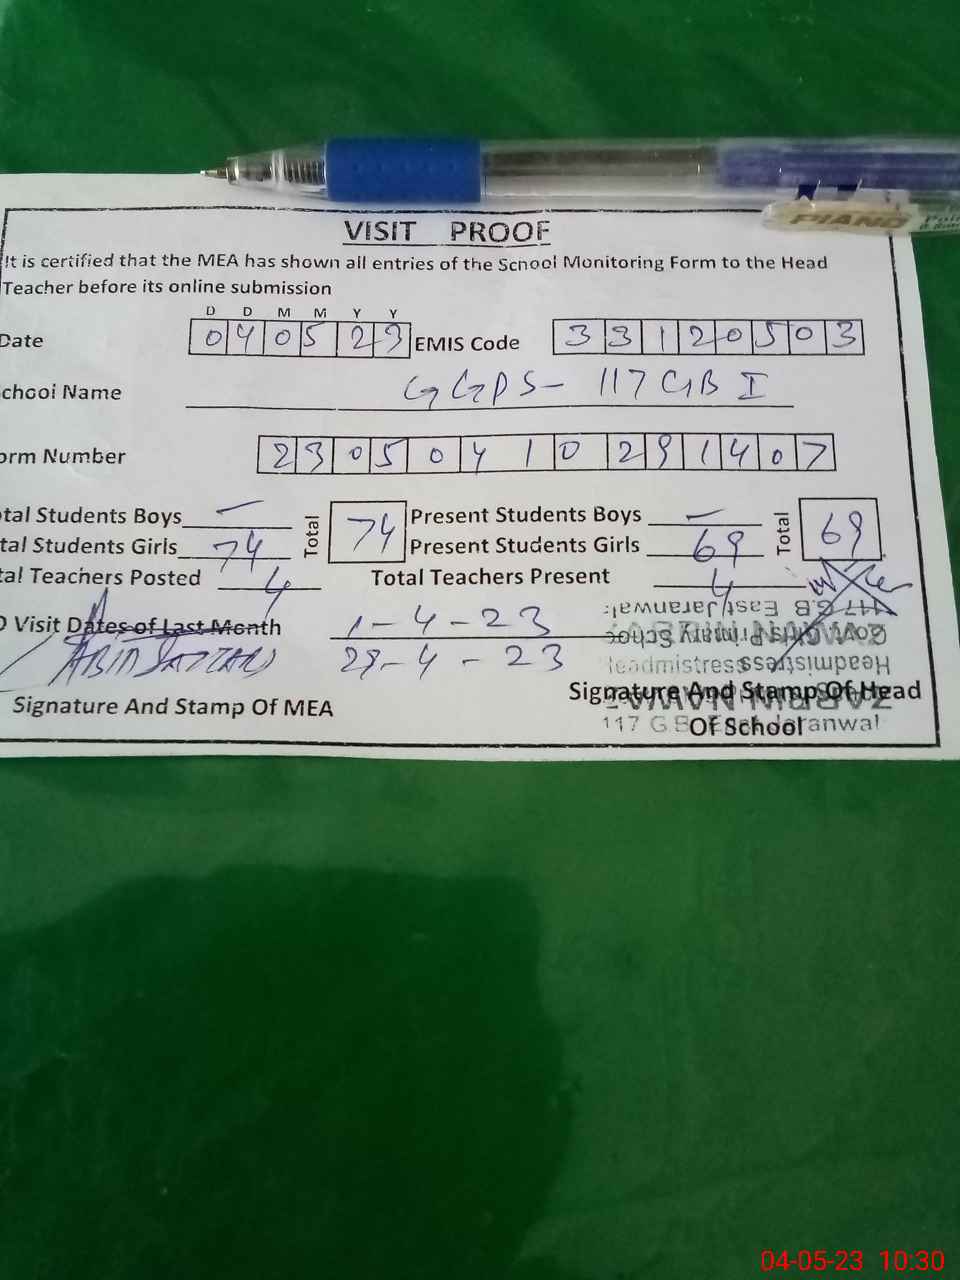 PIANO
VISIT PROOF
It is certified that the MEA has shown all entries of the School Monitoring Form to the Head
Teacher before its online submission
D D M M Y Y
Date 0 4 0 5 2 3 EMIS Code 3 3 1 2 0 5 0 3
chool Name GGPS- 117 GB I
orm Number 2 3 0 5 0 4 1 0 2 9 1 4 0 7
tal Students Boys - Total 74 Present Students Boys - Total 69
tal Students Girls 74 Present Students Girls 69
tal Teachers Posted 4 Total Teachers Present 4
117 G.B East Jaranwal
O Visit Dates of Last Month 1-4-23
Govt Girls Primary School
ABID SATTAR 29-4-23
Headmistress
Signature And Stamp Of MEA Signature And Stamp Of Head
Of School
117 G.B East Jaranwal
04-05-23 10:30